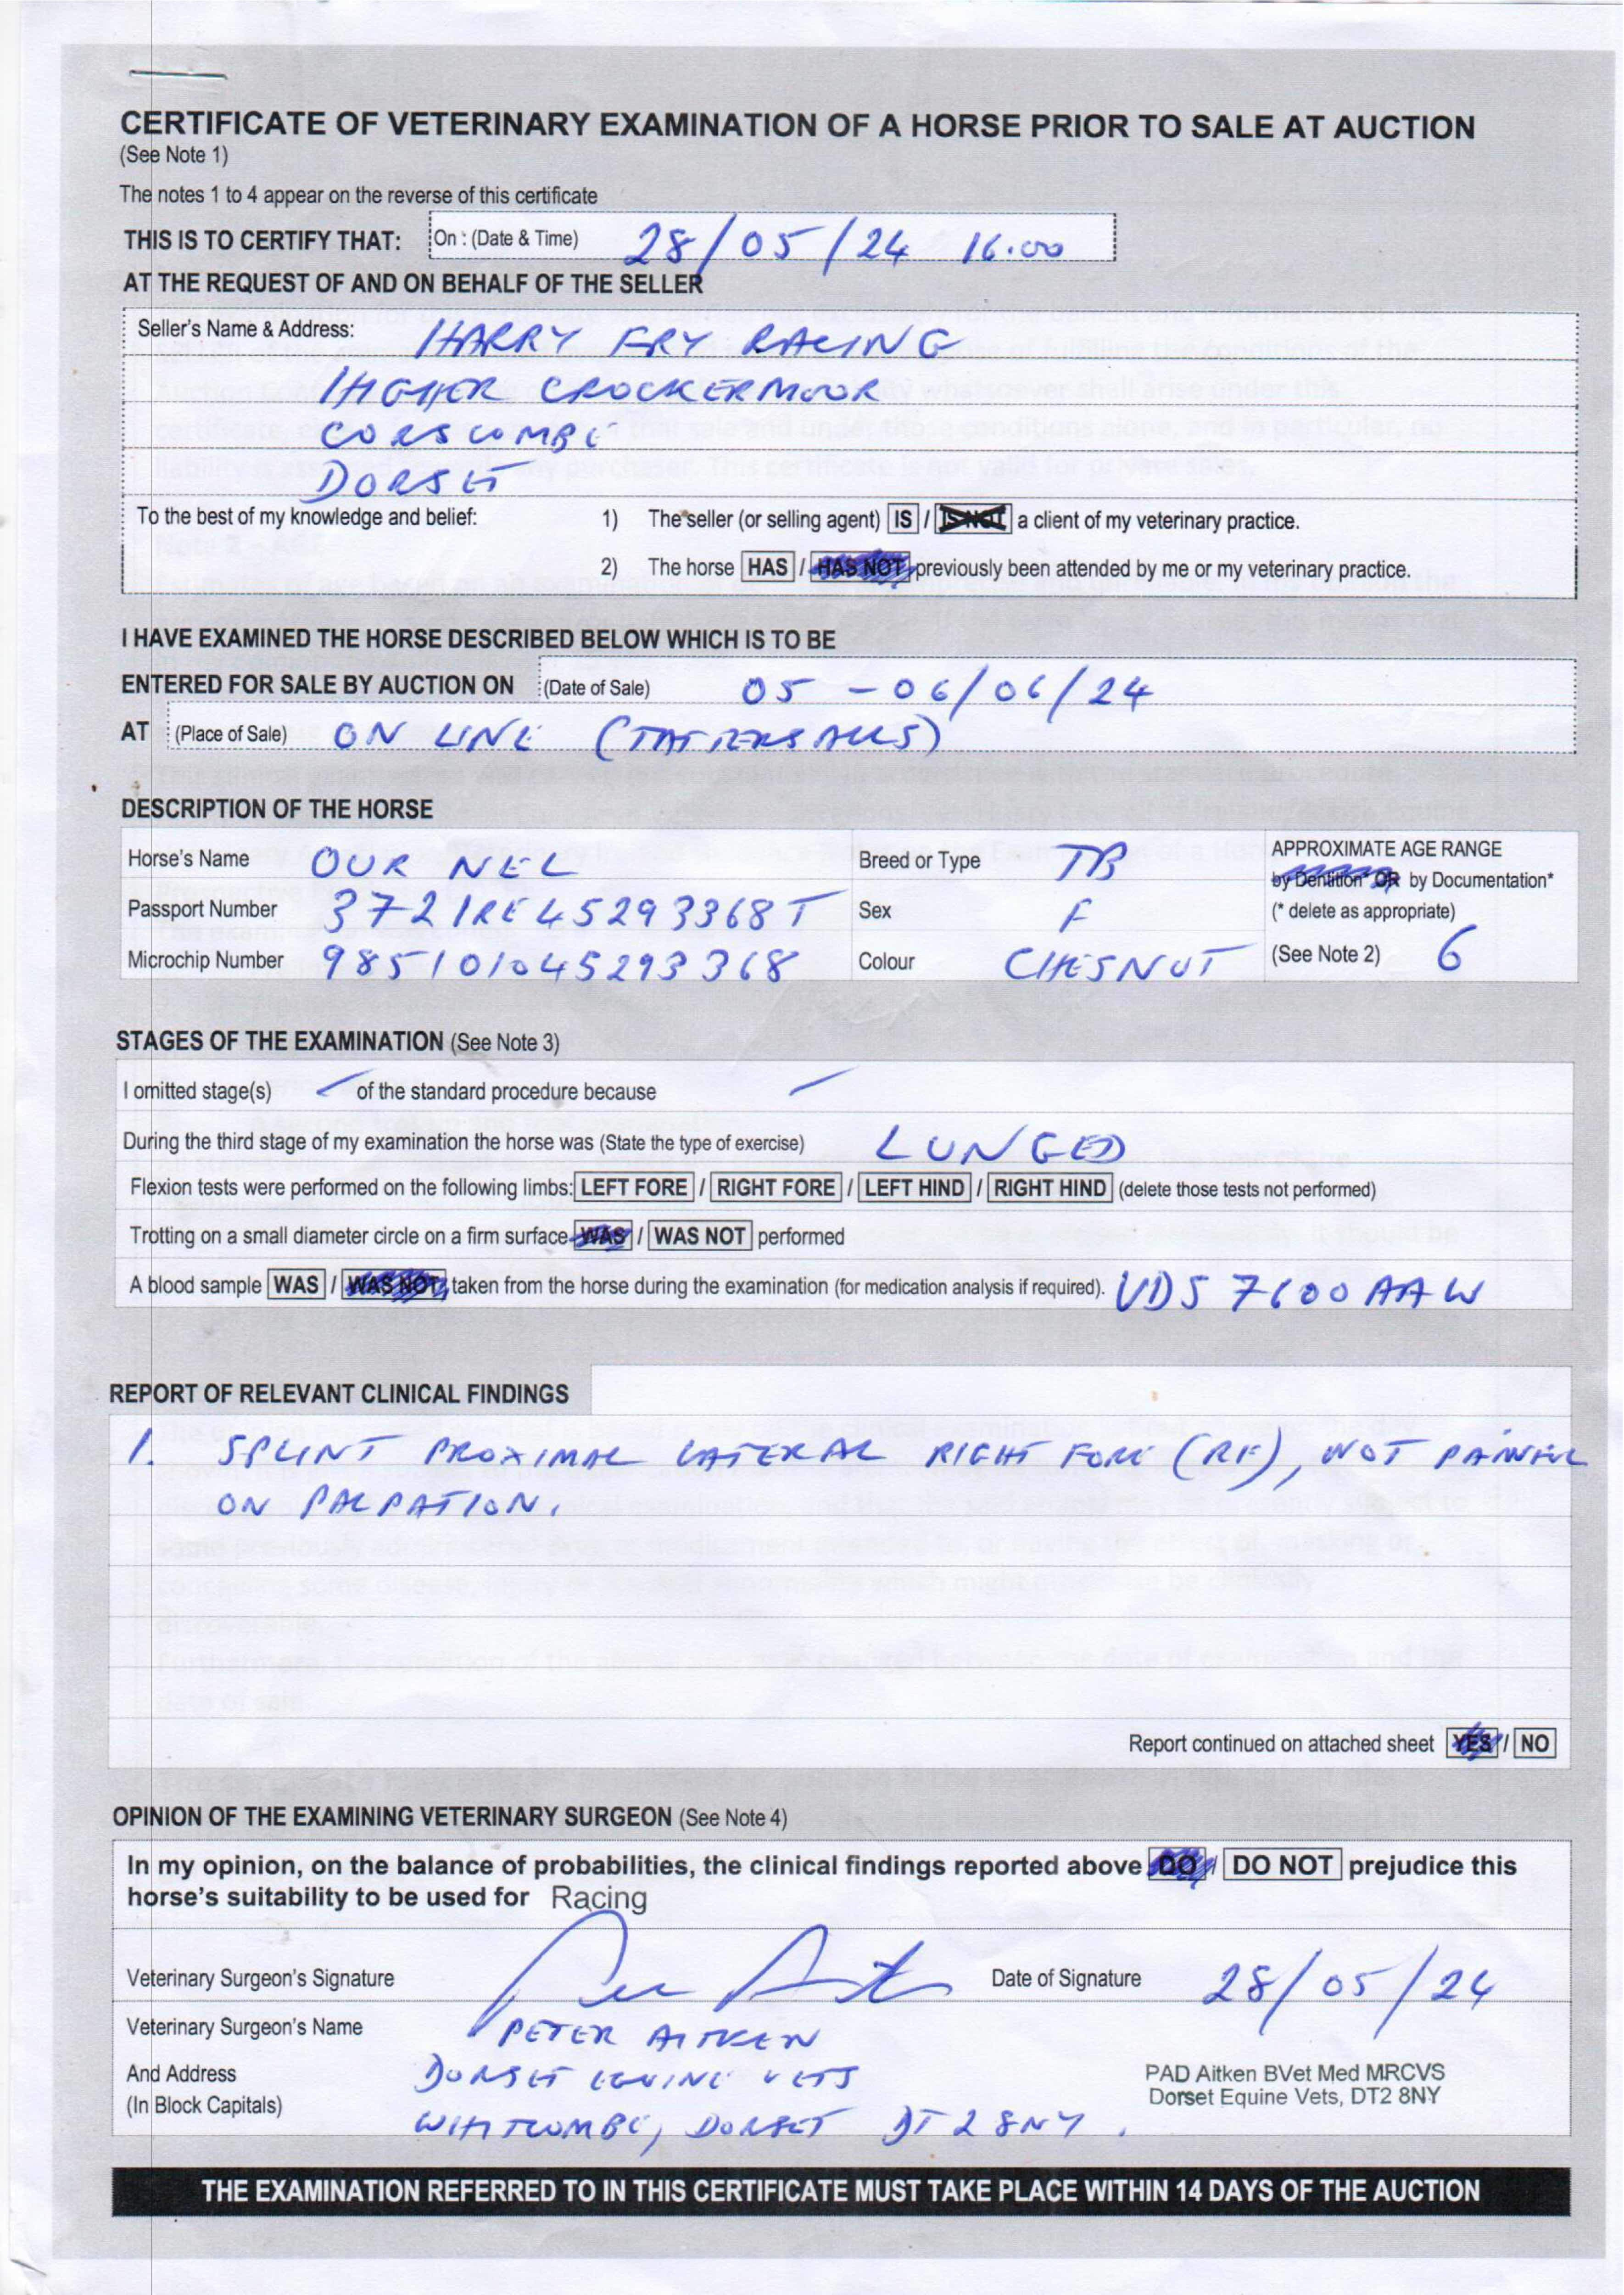 CERTIFICATE OF VETERINARY EXAMINATION OF A HORSE PRIOR TO SALE AT AUCTION
(See Note 1)
The notes 1 to 4 appear on the reverse of this certificate
THIS IS TO CERTIFY THAT: On : (Date & Time) 28/05/24 16.00
AT THE REQUEST OF AND ON BEHALF OF THE SELLER
Seller's Name & Address: HARRY FRY RACING
HIGHER CROCKERMOOR
CORSCOMBE
DORSET
To the best of my knowledge and belief: 1) The seller (or selling agent) IS / IS NOT a client of my veterinary practice.
2) The horse HAS / HAS NOT previously been attended by me or my veterinary practice.
I HAVE EXAMINED THE HORSE DESCRIBED BELOW WHICH IS TO BE
ENTERED FOR SALE BY AUCTION ON (Date of Sale) 05 - 06/06/24
AT (Place of Sale) ON LINE (TATTERSALLS)
DESCRIPTION OF THE HORSE
Horse's Name OUR NEL Breed or Type TB APPROXIMATE AGE RANGE
by Dentition* OR by Documentation*
Passport Number 372IRE45293368T Sex F (* delete as appropriate)
Microchip Number 985101045293368 Colour CHESNUT (See Note 2) 6
STAGES OF THE EXAMINATION (See Note 3)
I omitted stage(s) of the standard procedure because
During the third stage of my examination the horse was (State the type of exercise) LUNGED
Flexion tests were performed on the following limbs: LEFT FORE / RIGHT FORE / LEFT HIND / RIGHT HIND (delete those tests not performed)
Trotting on a small diameter circle on a firm surface WAS / WAS NOT performed
A blood sample WAS / WAS NOT taken from the horse during the examination (for medication analysis if required). VDS 7600AAW
REPORT OF RELEVANT CLINICAL FINDINGS
1. SPLINT PROXIMAL LATERAL RIGHT FORE (RF), NOT PAINFUL
ON PALPATION.
Report continued on attached sheet YES / NO
OPINION OF THE EXAMINING VETERINARY SURGEON (See Note 4)
In my opinion, on the balance of probabilities, the clinical findings reported above DO / DO NOT prejudice this
horse's suitability to be used for Racing
Veterinary Surgeon's Signature Date of Signature 28/05/24
Veterinary Surgeon's Name PETER AITKEN
And Address DORSET EQUINE VETS PAD Aitken BVet Med MRCVS
(In Block Capitals) WHITCOMBE, DORSET DT2 8NY. Dorset Equine Vets, DT2 8NY
THE EXAMINATION REFERRED TO IN THIS CERTIFICATE MUST TAKE PLACE WITHIN 14 DAYS OF THE AUCTION